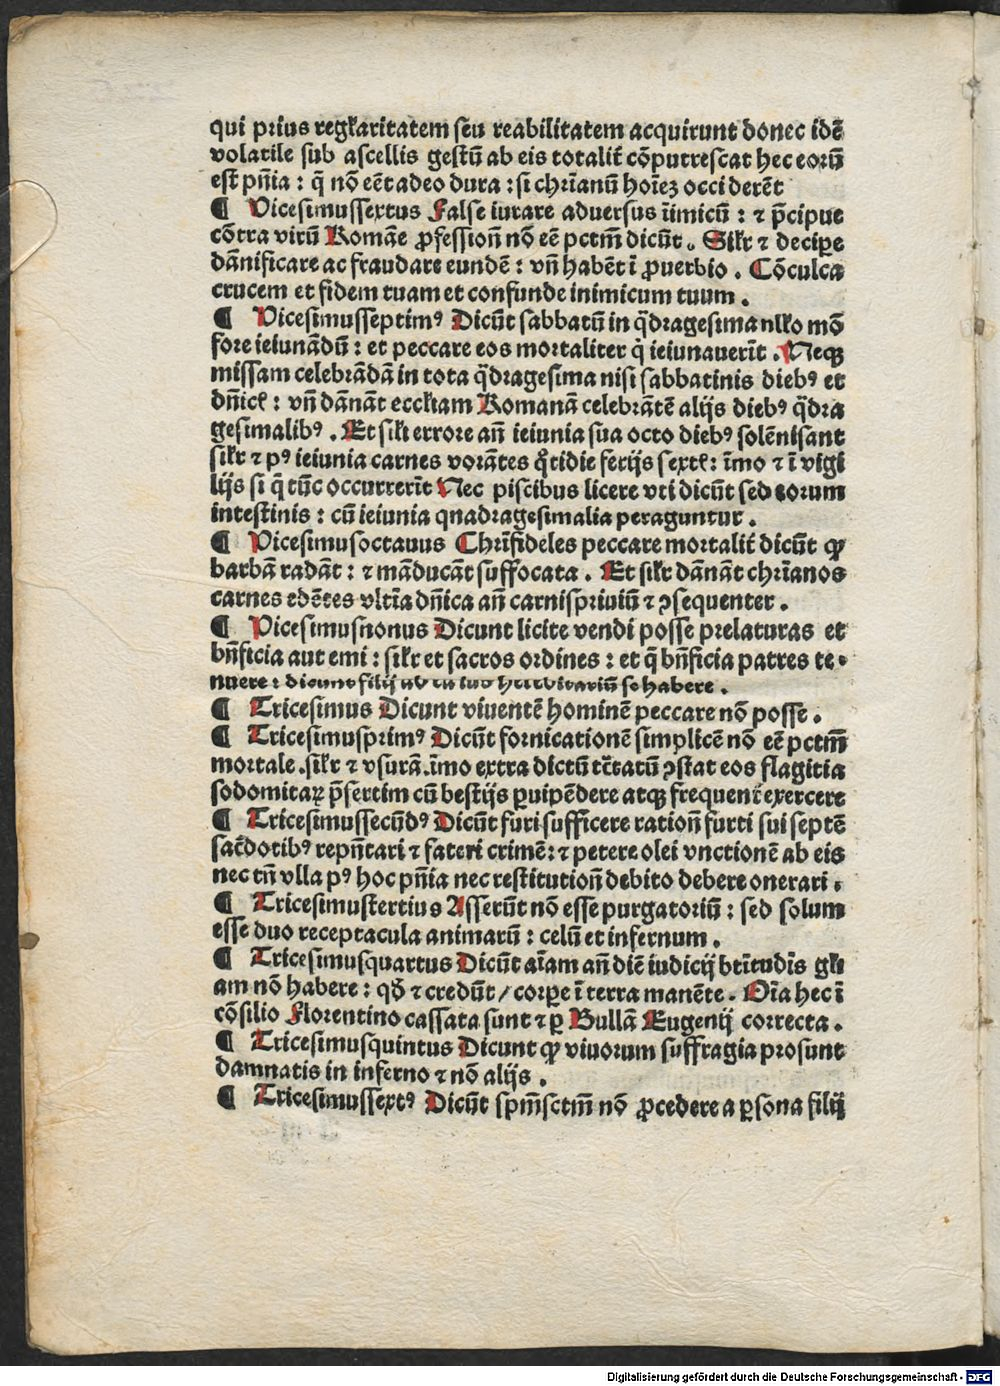 qui prius regkaritatem seu reabilitatem acquirunt donec idē
volatile sub ascellis gestū ab eis totalit̄ cōputrescat hec eorū
est pn̄ia : q̄ nō eēt adeo dura : si chr̄ianū hoīez occiderēt
¶ Vicesimussextus False iurare adversus īimicū : ⁊ p̄cipue
cōtra virū Romāe ꝓfession̄ nō eē pctm̄ dicūt . Silr ⁊ decipe
dānificare ac fraudare eundē : vn̄ habēt ī ꝓuerbio . Cōculca
crucem et fidem tuam et confunde inimicum tuum .
¶ Vicesimusseptimꝰ Dicūt sabbatū in q̄dragesima nllo mō
fore ieiunādū : et peccare eos mortaliter q̇ ieiunauerīt . Neqꝫ
missam celebrādā in tota q̄dragesima nisi sabbatinis diebꝰ et
dn̄icꝭ : vn̄ dānāt eccliam Romanā celebrātē alijs diebꝰ q̄dra
gesimalibꝰ . Et sili errore an̄ ieiunia sua octo diebꝰ solēnisant
silr ⁊ pꝰ ieiunia carnes vorātes q̊tidie ferijs sextꝭ : īmo ⁊ ī vigi
lijs si q̄ tūc occurrerīt Nec piscibus licere vti dicūt sed eorum
intestinis : cū ieiunia qnadragesimalia peraguntur .
¶ Vicesimusoctauus Chr̄ifideles peccare mortalit̄ dicūt ꝙ
barbā radāt : ⁊ māducāt suffocata . Et silr dānāt chr̄ianos
carnes edētes vltīa dn̄ica an̄ carnispriuiū ⁊ ꝯsequenter .
¶ Vicesimusnonus Dicunt licite vendi posse prelaturas et
bn̄ficia aut emi : silr et sacros ordines : et q̄ bn̄ficia patres te-
nuere : dicunt filij se habere .
¶ Tricesimus Dicunt viuentē hominē peccare nō posse .
¶ Tricesimusprimꝰ Dicūt fornicationē simplicē nō eē pctm̄
mortale . silr ⁊ vsurā . īmo extra dictū tc̄tatū ꝯstat eos flagitia
sodomitaꝝ p̄sertim cū bestijs ꝑuipēdere atqꝫ frequenī exercere
¶ Tricesimussecūdꝰ Dicūt furi sufficere ration̄ furti sui septē
sac̄dotibꝰ repn̄tari ⁊ fateri crimē : ⁊ petere olei vnctionē ab eis
nec tn̄ vlla pꝰ hoc pn̄ia nec restitution̄ debito debere onerari .
¶ Tricesimustertius Asserūt nō esse purgatoriū : sed solum
esse duo receptacula animarū : celū et infernum .
¶ Tricesimusquartus Dicūt aīam an̄ diē iudicij btītudīs gli
am nō habere : qđ ⁊ credūt / corpe ī terra manēte . Oīa hec ī
cōsilio Florentino cassata sunt ⁊ ꝑ Bullā Eugenij correcta .
¶ Tricesimusquintus Dicunt ꝙ viuorum suffragia prosunt
damnatis in inferno ⁊ nō alijs .
¶ Tricesimussextꝰ Dicūt spm̄sctm̄ nō ꝓcedere a ꝑsona filij
Digitalisierung gefördert durch die Deutsche Forschungsgemeinschaft - DFG